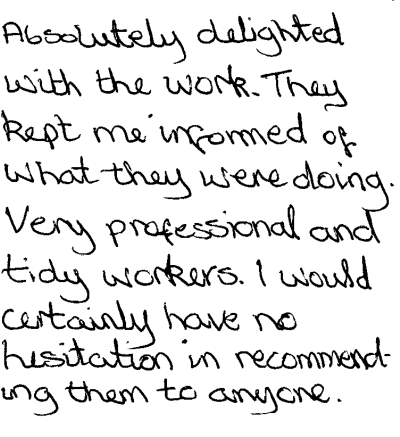 Absolutely delighted
with the work. They
kept me informed of
what they were doing.
Very professional and
tidy workers. I would
certainly have no
hesitation in recommend-
ing them to anyone.